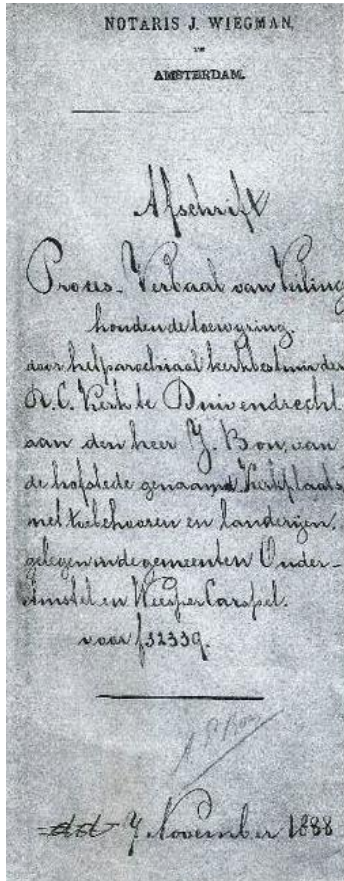 NOTARIS J. WIEGMAN,
TE
AMSTERDAM.
Afschrift
Proces-Verbaal van Veiling
houdende toewijzing.
door het parochiaal kerkbestuur der
R. C. Kerk te Duivendrecht
aan den heer J. Bon, van
de hofstede genaamd Kerkplaats
met toebehooren en landerijen,
gelegen in de gemeenten Ouder-
Amstel en Weesper Carspel.
voor f 32339.
7 November 1888